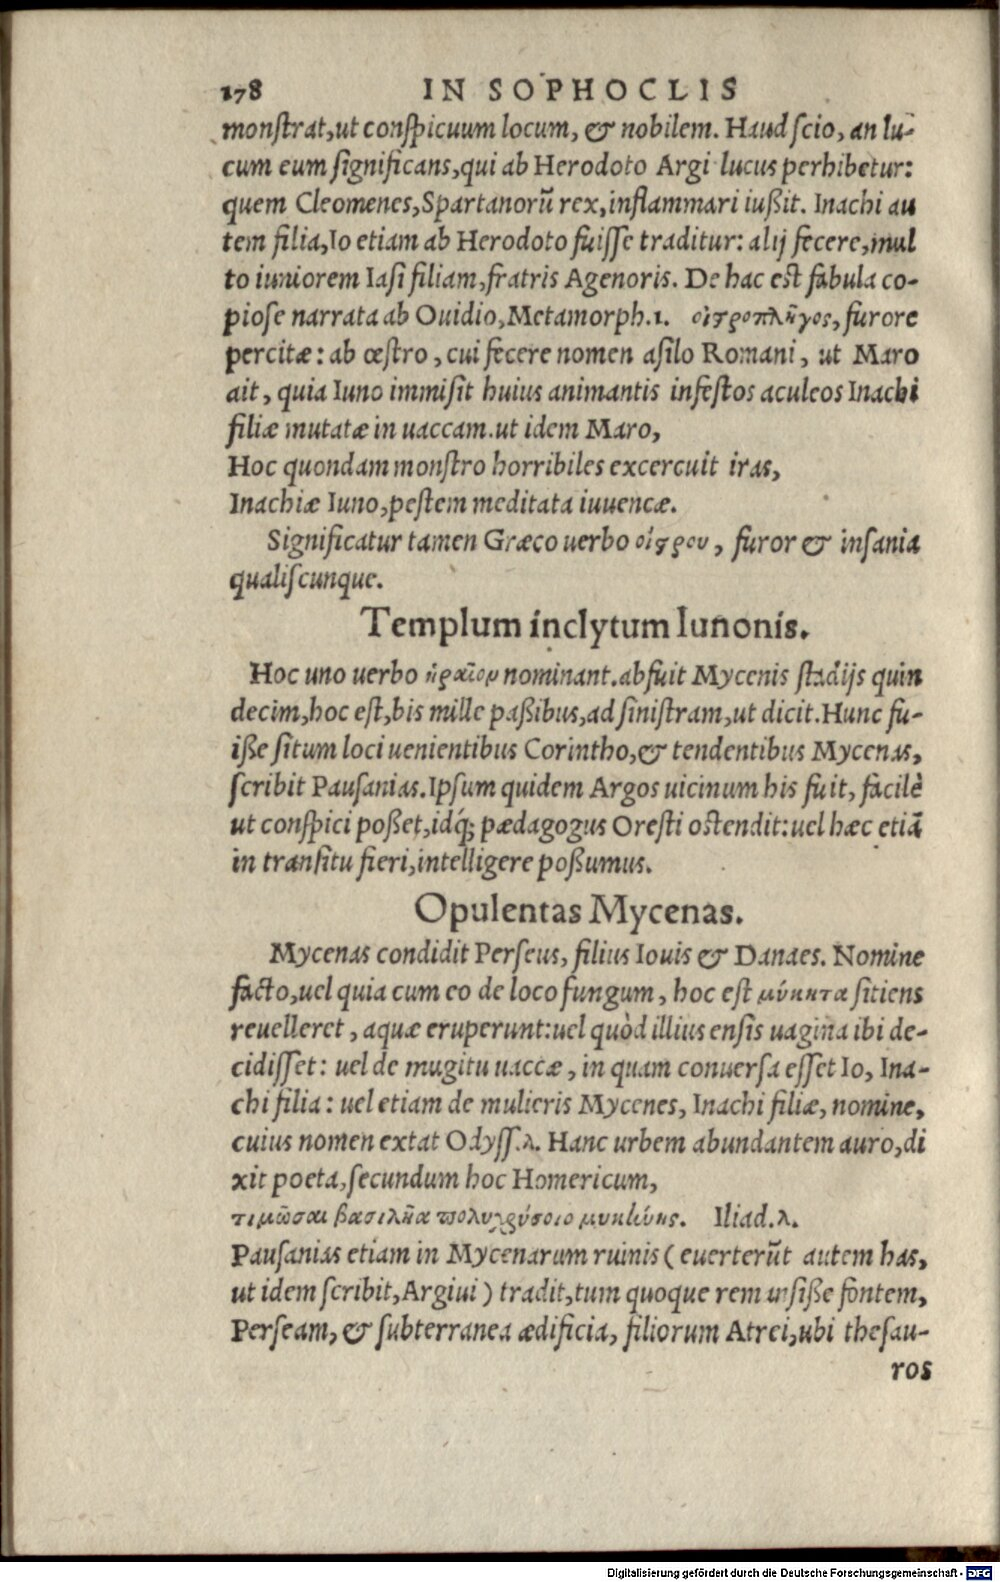 178 IN SOPHOCLIS
monſtrat,ut conſpicuum locum, & nobilem. Haud ſcio, an lu-
cum eum ſignificans,qui ab Herodoto Argi lucus perhibetur:
quem Cleomenes,Spartanorũ rex,inflammari iußit. Inachi au
tem filia,Io etiam ab Herodoto fuiſſe traditur: alij fecere,mul
to iuniorem Iaſi filiam,fratris Agenoris. De hac eſt fabula co-
pioſe narrata ab Ouidio,Metamorph.1. οἰστροπλῆγος, furore
percitæ: ab œſtro, cui fecere nomen aſilo Romani, ut Maro
ait, quia Iuno immiſit huius animantis infeſtos aculeos Inachi
filiæ mutatæ in uaccam.ut idem Maro,
Hoc quondam monſtro horribiles excercuit iras,
Inachiæ Iuno,peſtem meditata iuuencæ.
Significatur tamen Græco uerbo οἴστρου, furor & inſania
qualiſcunque.
Templum inclytum Iunonis.
Hoc uno uerbo ἡραῖον nominant.abfuit Mycenis ſtadijs quin
decim,hoc eſt,bis mille paßibus,ad ſiniſtram,ut dicit.Hunc fu-
iße ſitum loci uenientibus Corintho,& tendentibus Mycenas,
ſcribit Pauſanias.Ipſum quidem Argos uicinum his fuit, facilè
ut conſpici poßet,idq́; pædagogus Oreſti oſtendit:uel hæc etiã
in tranſitu fieri,intelligere poßumus.
Opulentas Mycenas.
Mycenas condidit Perſeus, filius Iouis & Danaes. Nomine
facto,uel quia cum eo de loco fungum, hoc eſt μύκητα ſitiens
reuelleret, aquæ eruperunt:uel quòd illius enſis uagina ibi de-
cidiſſet: uel de mugitu uaccæ, in quam conuerſa eſſet Io, Ina-
chi filia: uel etiam de mulieris Mycenes, Inachi filiæ, nomine,
cuius nomen extat Odyſſ.λ. Hanc urbem abundantem auro,di
xit poeta,ſecundum hoc Homericum,
τιμῶσαι βασιλῆα πολυχρύσοιο μυκήνης. Iliad.λ.
Pauſanias etiam in Mycenarum ruinis (euerterũt autem has,
ut idem ſcribit,Argiui) tradit,tum quoque remanſiße fontem,
Perſeam, & ſubterranea ædificia, filiorum Atrei,ubi theſau-
ros
Digitalisierung gefördert durch die Deutsche Forschungsgemeinschaft - DFG